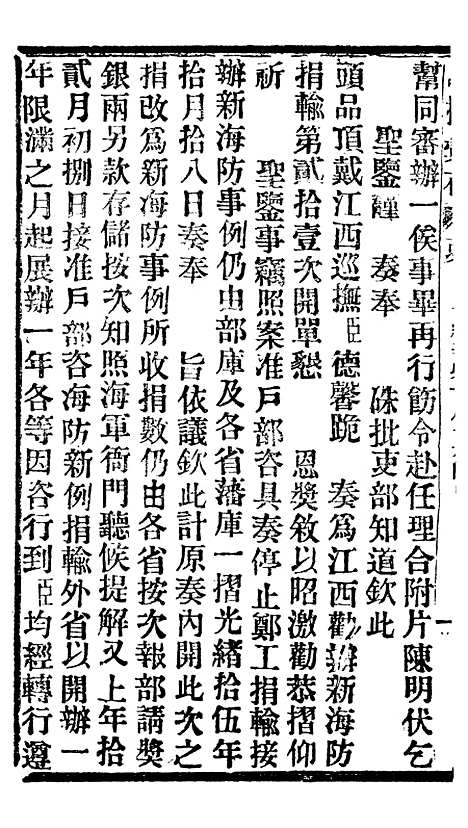 幫同審辦一俟事畢再行飭令赴任理合附片陳明伏乞
聖鑒謹 奏奉 硃批吏部知道欽此
頭品頂戴江西巡撫臣德馨跪 奏爲江西勸辦新海防
捐輸第貳拾壹次開單懇 恩獎敘以昭激勸恭摺仰
祈 聖鑒事竊照案准戶部咨具奏停止鄭工捐輸接
辦新海防事例仍由部庫及各省藩庫一摺光緒拾伍年
拾月拾八日奏奉 旨依議欽此計原奏內開此次之
捐改爲新海防事例所收捐數仍由各省按次報部請獎
銀兩另款存儲按次知照海軍衙門聽候提解又上年拾
貳月初捌日接准戶部咨海防新例捐輸外省以開辦一
年限滿之月起展辦一年各等因咨行到臣均經轉行遵